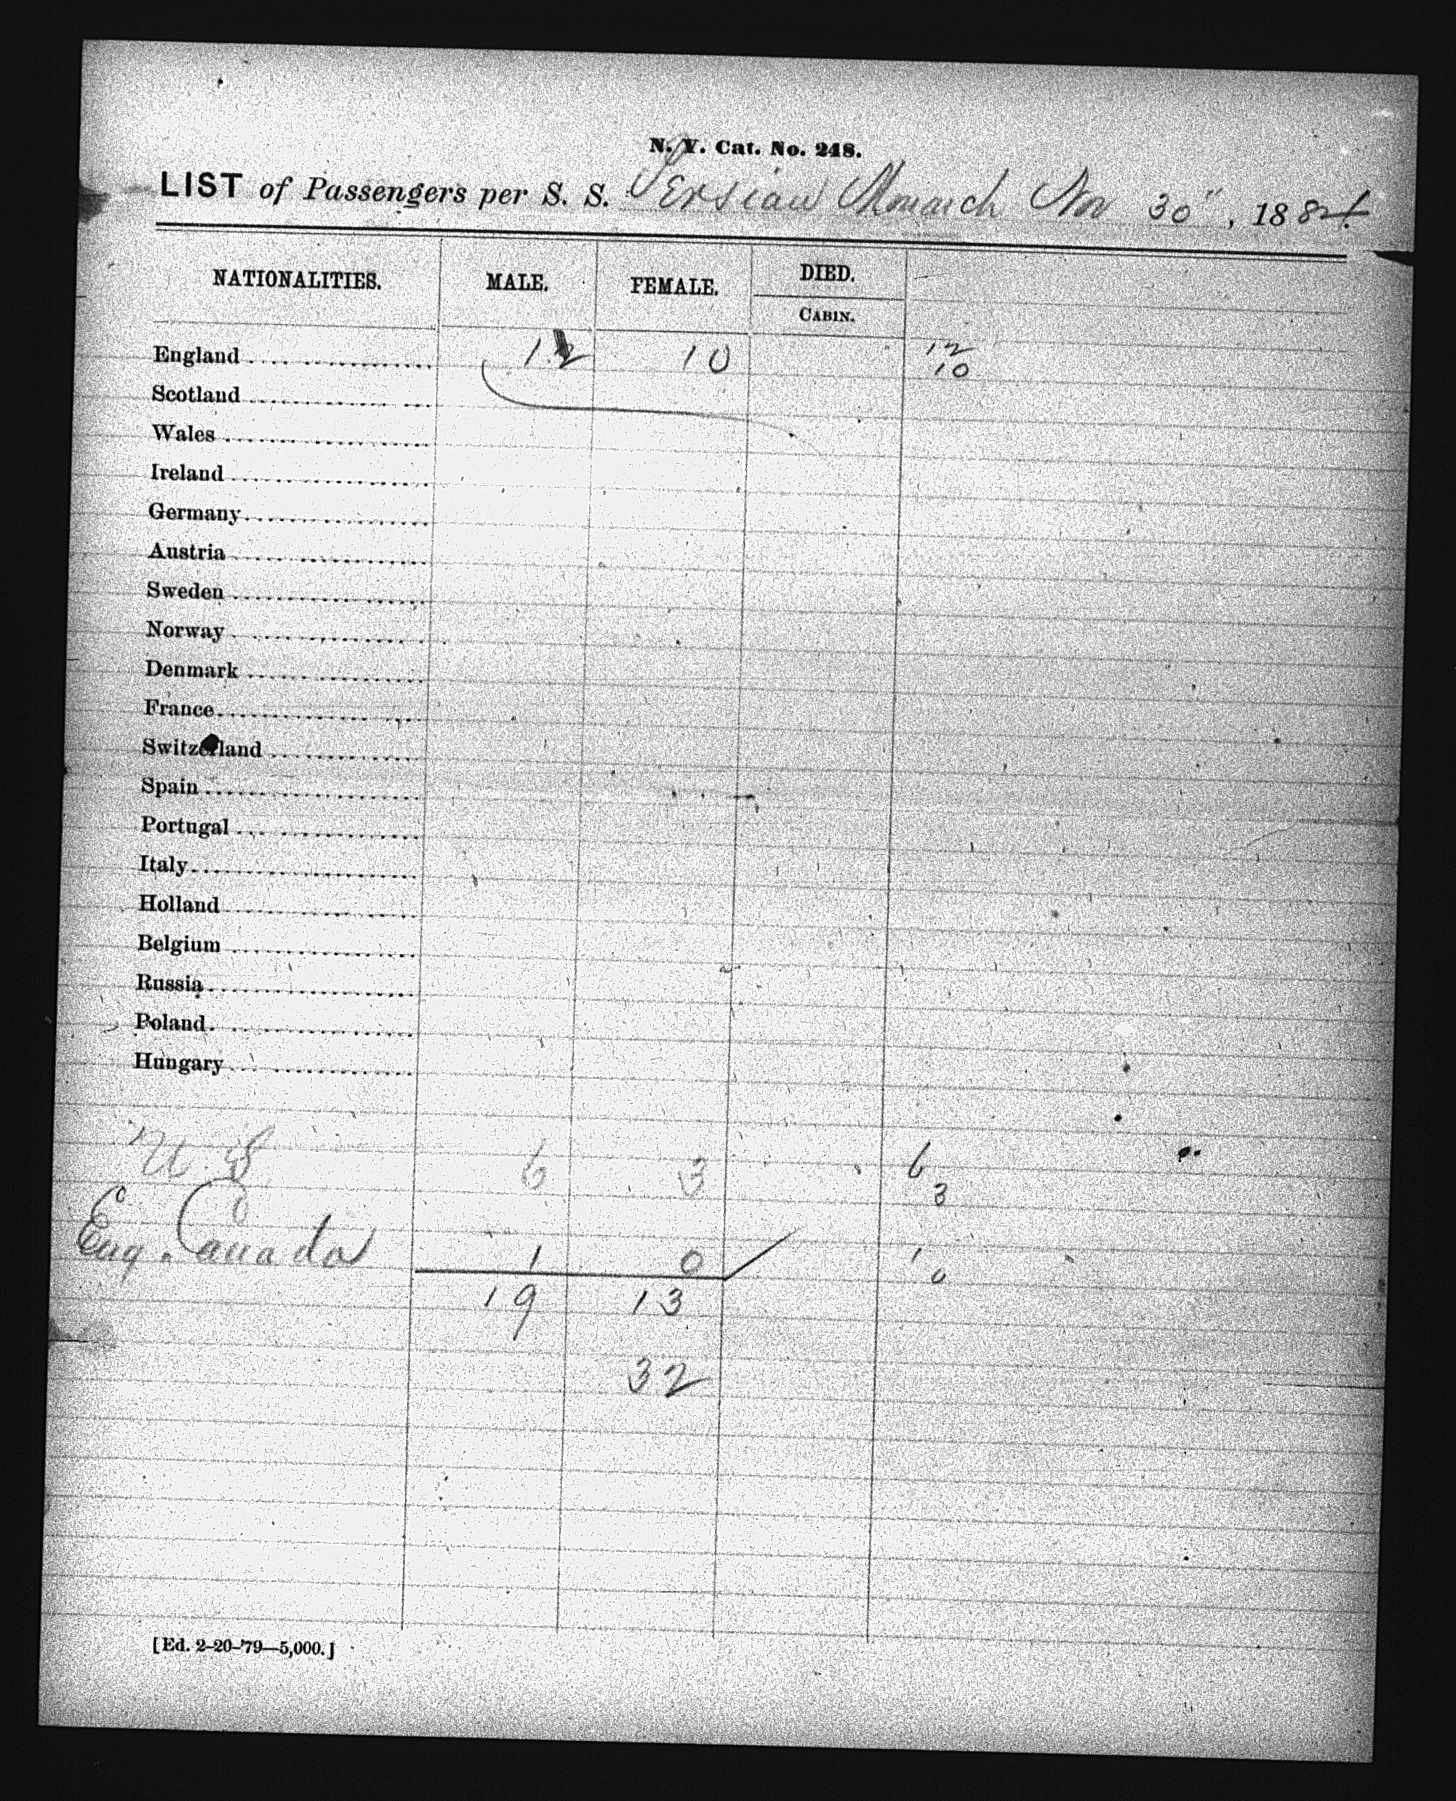 N. Y. Cat. No. 248.
LIST of Passengers per S. S. Persian Monarch Nov 30", 1884.
NATIONALITIES. MALE. FEMALE. DIED.
CABIN.
England 12 10 12
10
Scotland
Wales
Ireland
Germany
Austria
Sweden
Norway
Denmark
France
Switzerland
Spain
Portugal
Italy
Holland
Belgium
Russia
Poland
Hungary
U. S 6 3 6
3
Eng. Canada 1 0 1
0
19 13
32
[Ed. 2-20-'79—5,000.]